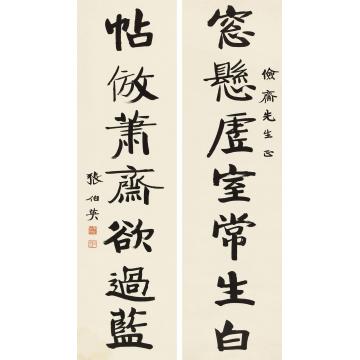 儉齋先生正
窓懸虗室常生白
帖倣蕭齋欲過藍
張伯英